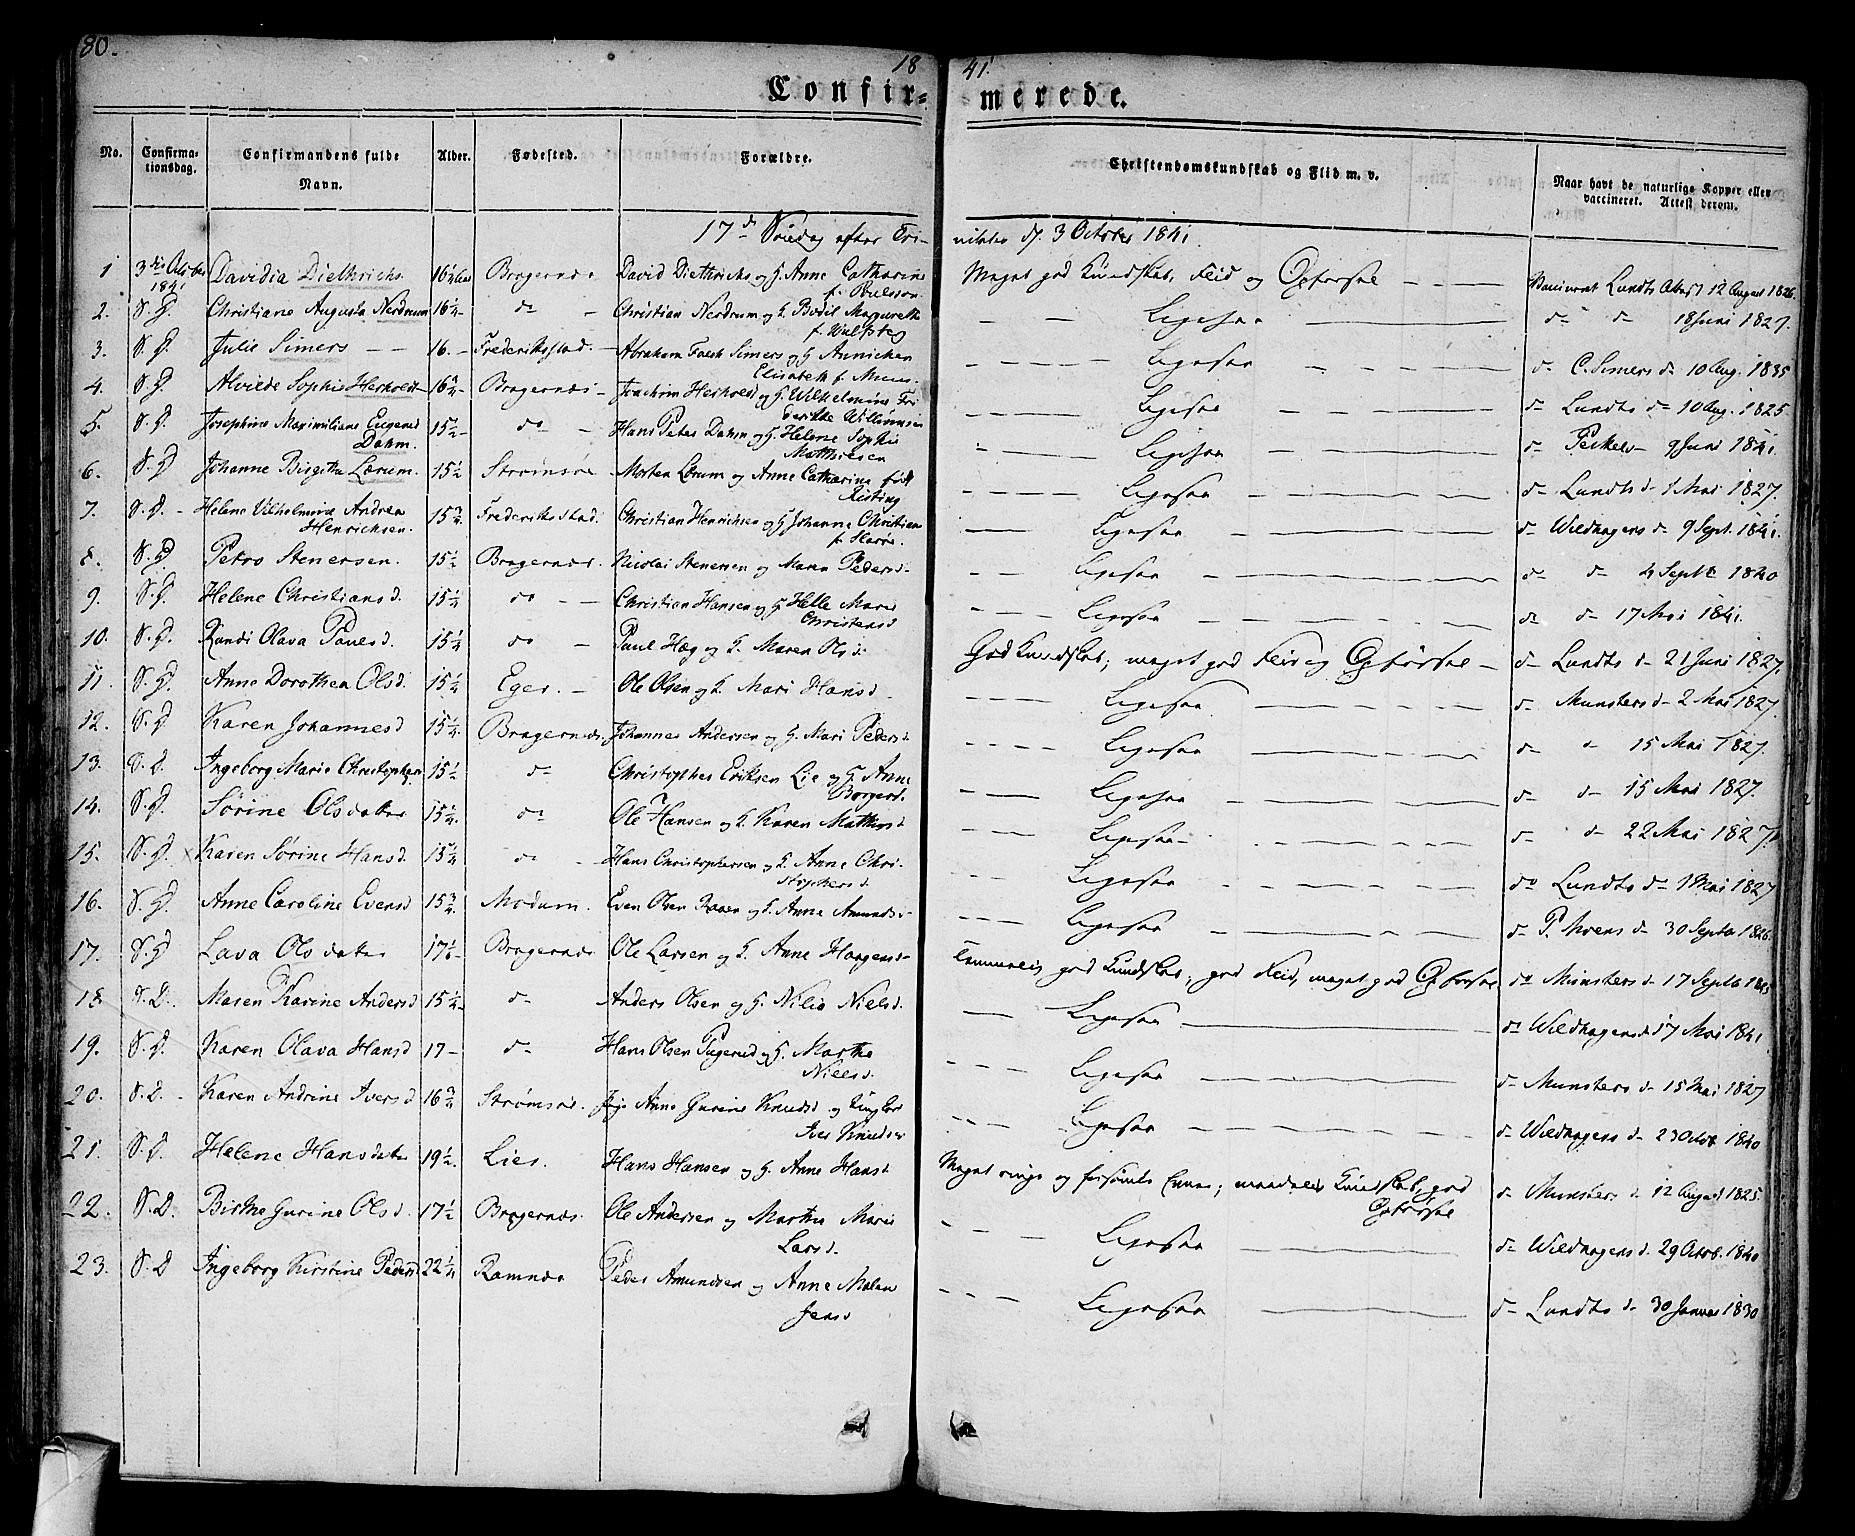 80.
18 41.
Confir= merede.
No. Confirma-tionsdag. Confirmandens fulde Navn. Alder. Fødested. Forældre. Christendomskundskab og Flid m. v. Naar havt de naturlige Kopper eller vaccineret. Attest derom.
17d Søndag efter Tri- nitatis d. 3 October 1841.
1 3die October 1841 Davidia Diethrichs 16 1/4 Aar Bragernæs David Diethrichs og H. Anne Catharine f. Poulsson Meget god Kundskab, Flid og Opførsel Vaccineret Lundts Attest 12 August 1826.
2. S. D. Christiane Augusta Nerdrum 16 1/4 do Christian Nerdrum og H. Bodil Margareth f. Wulfsberg Ligesaa do do 18 Juni 1827.
3. S. D. Julie Simers 16. Frederikstad. Abraham Falch Simers og H. Annichen Elisabeth f. Ligesaa do C. Simers do 10 Aug. 1835
4. S. D. Alvilde Sophie Herholdt 16 3/4 Bragernæs Joachim Herholdt og H. Wilhelmine Fri- derikke Willumsen Ligesaa do Lundts do 10 Aug. 1825
5. S. D. Josephine Maximiliane Eugenie Dahm. 15 1/2 do Hans Peter Dahm og H. Helene Sophie Mathiesen Ligesaa do 9 Juni 1841.
6. S. D. Johanne Birgithe Lærum. 15 1/2 Strømsøe Morten Lærum og Anne Catharine født Risting Ligesaa do Lundts do 1 Mai 1827.
7. S. D. Helene Vilhelmine Andrea Henrichsen. 15 3/4 Frederikstad. Christian Henrichsen og H. Johanne Christiane Ligesaa do Wildhagens do 9 Sept. 1841.
8. S. D. Petra Stenersen. 15 1/2 Bragernæs. Nicolai Stenersen og Maren Pedersd. Ligesaa do do 4 Septbr 1840
9. S. D. Helene Christiansd. 15 1/4 do Christian Hansen og H. Helle Marie Christensd Ligesaa do do 17 Mai 1841.
10. S. D. Randi Olava Paulsd. 15 1/4 do Paul Hæg og H. Maren Olsd. God Kundskab; meget god Flid og Opførsel do Lundts do 21 Juni 1827.
11. S. D. Anne Dorothea Olsd. 15 1/4 Eger. Ole Olsen og H. Mari Hansd. Ligesaa do Munsters do 2 Mai 1827.
12. S. D Karen Johannesd 15 1/4 Bragernæs. Johannes Andersen og H. Mari Pedersd. Ligesaa do do 15 Mai 1827.
13. S. D. Ingeborg Marie Christophersd 15 1/2 do Christopher Eriksen Lie og H. Anne Borgersd. Ligesaa do do 15 Mai 1827.
14. S. D. Sørine Olsdatter 15 1/4. do Ole Hansen og H. Karen Mathisd Ligesaa do do 22 Mai 1827.
15. S. D. Karen Sørine Hansd. 15 1/4 do Hans Christophersen og H. Anne Chri- stophersd. Ligesaa do Lundts do 1 Mai 1827
16. S. D. Anne Caroline Evensd 15 3/4. Modum. Even Olsen og H. Anne Amundsd. Ligesaa do P. Moens do 30 Septbr 1826.
17. S. D Lava Olsdatter 17 Bragernæs Ole Larsen og H. Anne Haagensd. Temmelig god Kundskab; god Flid, meget god Opførsel do Munsters do 17 Septbr
18. S. D. Maren Karine Andersd 15 1/4 do Anders Olsen og H. Nilia Nielsd. Ligesaa do Wildhagens do 17 Mai 1841.
19. S. D. Karen Olava Hansd 17 do Hans Olsen og H. Marthe Nielsd. Ligesaa do Munsters do 15 Mai 1827
20. S. D. Karen Andrine Iversd 16 3/4 Strømsøe. Pige Anne Gurine Knudsd og Ungkarl Iver Knudsen Ligesaa do Wildhagens do 23 Octbr. 1840
21. S. D. Helene Hansdatter 19 1/2. Lier. Hans Hansen og H. Anne Hansd. Meget ringe og forsømte Evner; maadelig Kundskab, god Opførsel do Munsters do 12 August 1825.
22. S. D. Birthe Gurine Olsd. 17 1/2 Bragernæs. Ole Andersen og Marthe Marie Larsd. Ligesaa do Wildhagens do 29 Octbr. 1840
23. S. D Ingeborg Kirstine Pedersd 22 1/4 Ramnæs Peder Amundsen og Anne Malene Jensd Ligesaa do Lundts do 30 Januar 1830